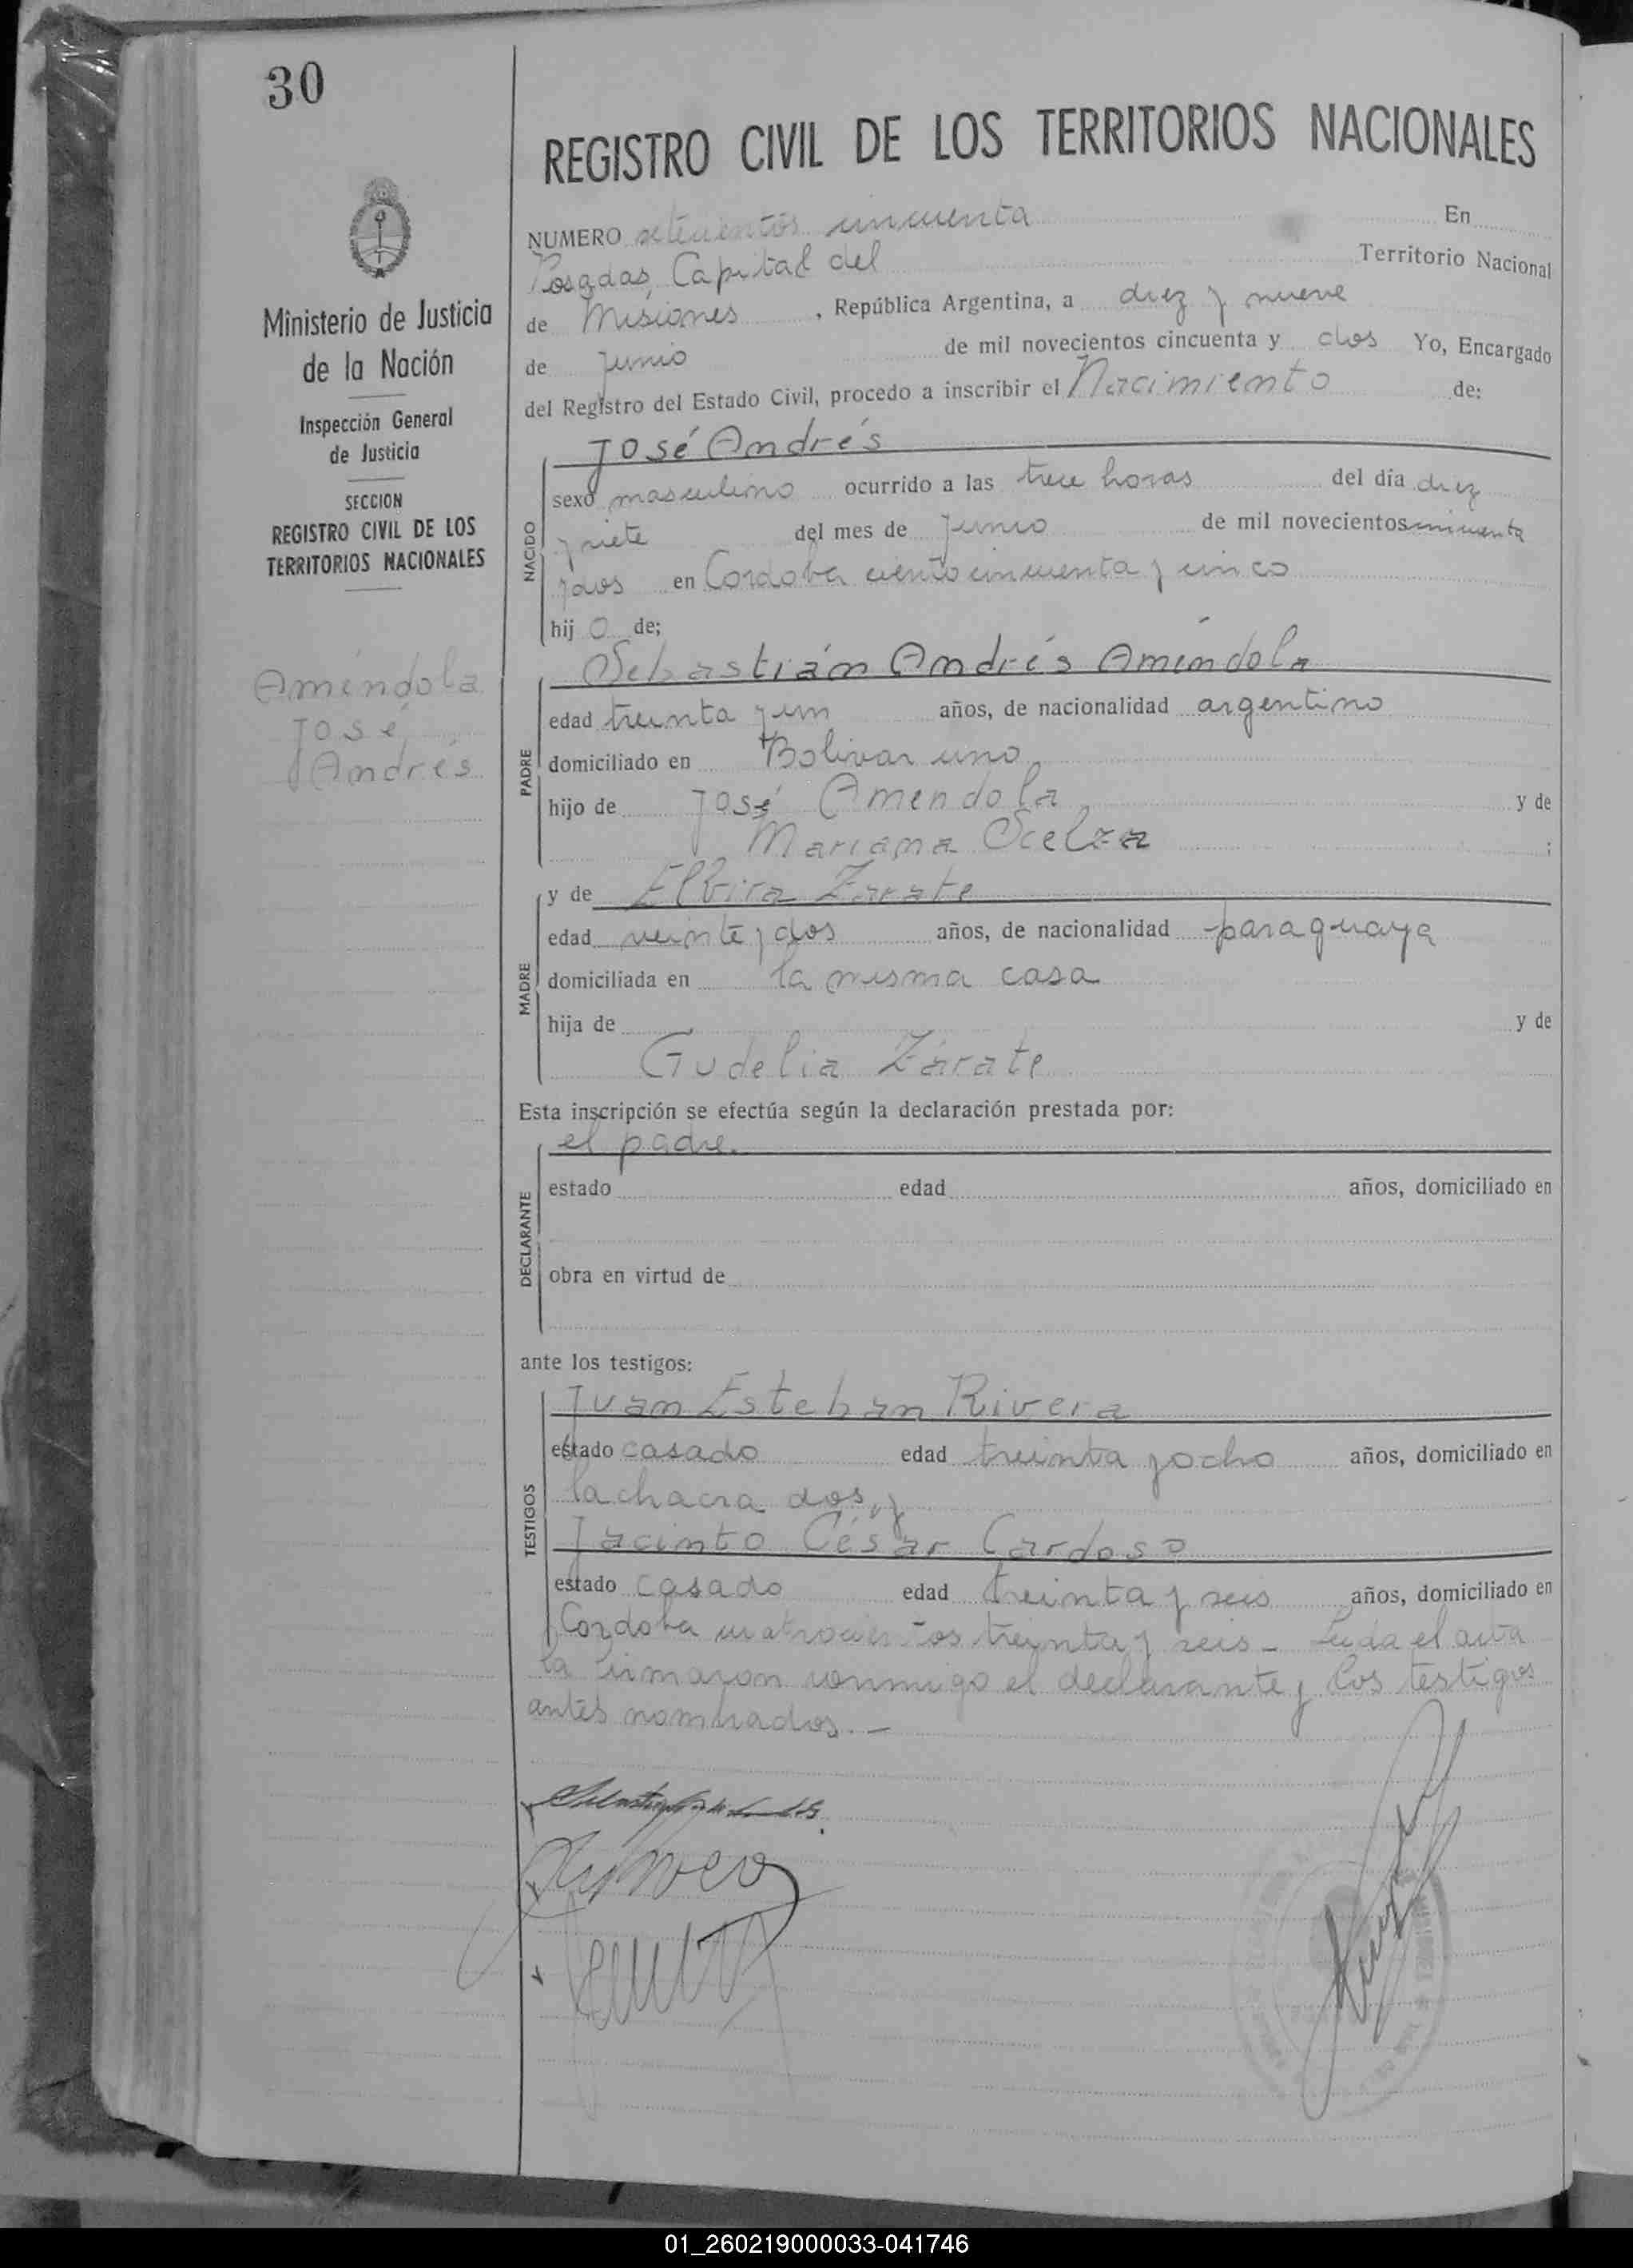 30
REGISTRO CIVIL DE LOS TERRITORIOS NACIONALES
Ministerio de Justicia
de la Nación
Inspección General
de Justicia
SECCION
REGISTRO CIVIL DE LOS
TERRITORIOS NACIONALES
Améndola
José
Andrés
NUMERO setecientos cincuenta En
Posadas, Capital del Territorio Nacional
de Misiones, República Argentina, a diez y nueve
de junio de mil novecientos cincuenta y dos Yo, Encargado
del Registro del Estado Civil, procedo a inscribir el Nacimiento de:
NACIDO
José Andrés
sexo masculino ocurrido a las trece horas del día diez
y siete del mes de junio de mil novecientos cincuenta
y dos en Cordoba ciento cincuenta y cinco
hijo de;
PADRE
Sebastián Andrés Améndola
edad treinta y un años, de nacionalidad argentino
domiciliado en Bolivar uno
hijo de José Amendola y de
Mariana Scelza ;
MADRE
y de Elbira Zarate
edad veinte y dos años, de nacionalidad paraguaya
domiciliada en la misma casa
hija de y de
Gudelia Zárate
Esta inscripción se efectúa según la declaración prestada por:
DECLARANTE
el padre.
estado edad años, domiciliado en
obra en virtud de
ante los testigos:
TESTIGOS
Juan Esteban Rivera
estado casado edad treinta y ocho años, domiciliado en
la chacra dos, y
Jacinto César Cardoso
estado casado edad treinta y seis años, domiciliado en
Cordoba cuatrocientos treinta y seis - Leida el acta
la firmaron conmigo el declarante y los testigos
antes nombrados. -
01_260219000033-041746